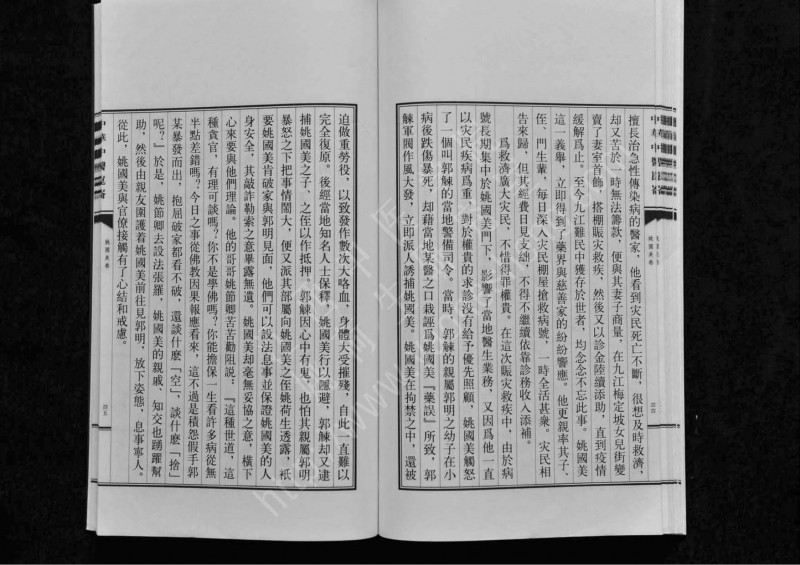 擅長治急性傳染病的醫家，他看到灾民死亡不斷，很想及時救濟，
却又苦於一時無法籌款，便與其妻子商量，在九江梅定坡女兒街變
賣了妻室首飾，搭棚賑灾救疾，然後又以診金陸續添助，直到疫情
緩解爲止。至今九江難民中獲存於世者，均念念不忘此事。姚國美
這一義舉，立即得到了藥界與慈善家的紛紛響應。他更親率其子、
侄、門生輩，每日深入灾民棚屋搶救病號，一時全活甚衆。灾民相
告來歸，但其經費日見支絀，不得不繼續依靠診務收入添補。
爲救濟廣大灾民，不惜得罪權貴。在這次賑灾救疾中，由於病
號長期集中於姚國美門下，影響了當地醫生業務，又因爲他一直
以灾民疾病爲重，對於權貴的求診没有給予優先照顧，姚國美觸怒
了一個叫郭觫的當地警備司令。當時，郭觫的親屬郭明之幼子在小
病後跌傷暴死，却藉當地某醫之口栽誣爲姚國美『藥誤』所致，郭
觫軍閥作風大發，立即派人誘捕姚國美。姚國美在拘禁之中，還被
姚國美卷
四四
迫做重勞役，以致發作數次大咯血，身體大受摧殘，自此一直難以
完全復原。後經當地知名人士保釋，姚國美行以隱避，郭觫却又逮
捕姚國美之子、之侄以作抵押。郭觫因心中有鬼，也怕其親屬郭明
暴怒之下把事情鬧大，便又派其部屬向姚國美之侄姚荷生透露，衹
要姚國美肯破家與郭明見面，他們可以設法息事並保證姚國美的人
身安全，其敲詐勒索之意畢露無遺。姚國美却毫無妥協之意，橫下
心來要與他們理論。他的哥哥姚節卿苦苦勸阻説：『這種世道，這
種貪官，有理可談嗎？你不是學佛嗎？你能擔保一生看許多病從無
半點差錯嗎？今日之事從佛教因果報應看來，這不過是積怨假手郭
某暴發而出，抱屈破家都看不破，還談什麽「空」，談什麽「捨」
呢？』於是，姚節卿去設法張羅，姚國美的親戚、知交也踴躍幫
助，然後由親友圍護着姚國美前往見郭明，放下姿態，息事寧人。
從此，姚國美與官僚接觸有了心結和戒慮。
姚國美卷
四五